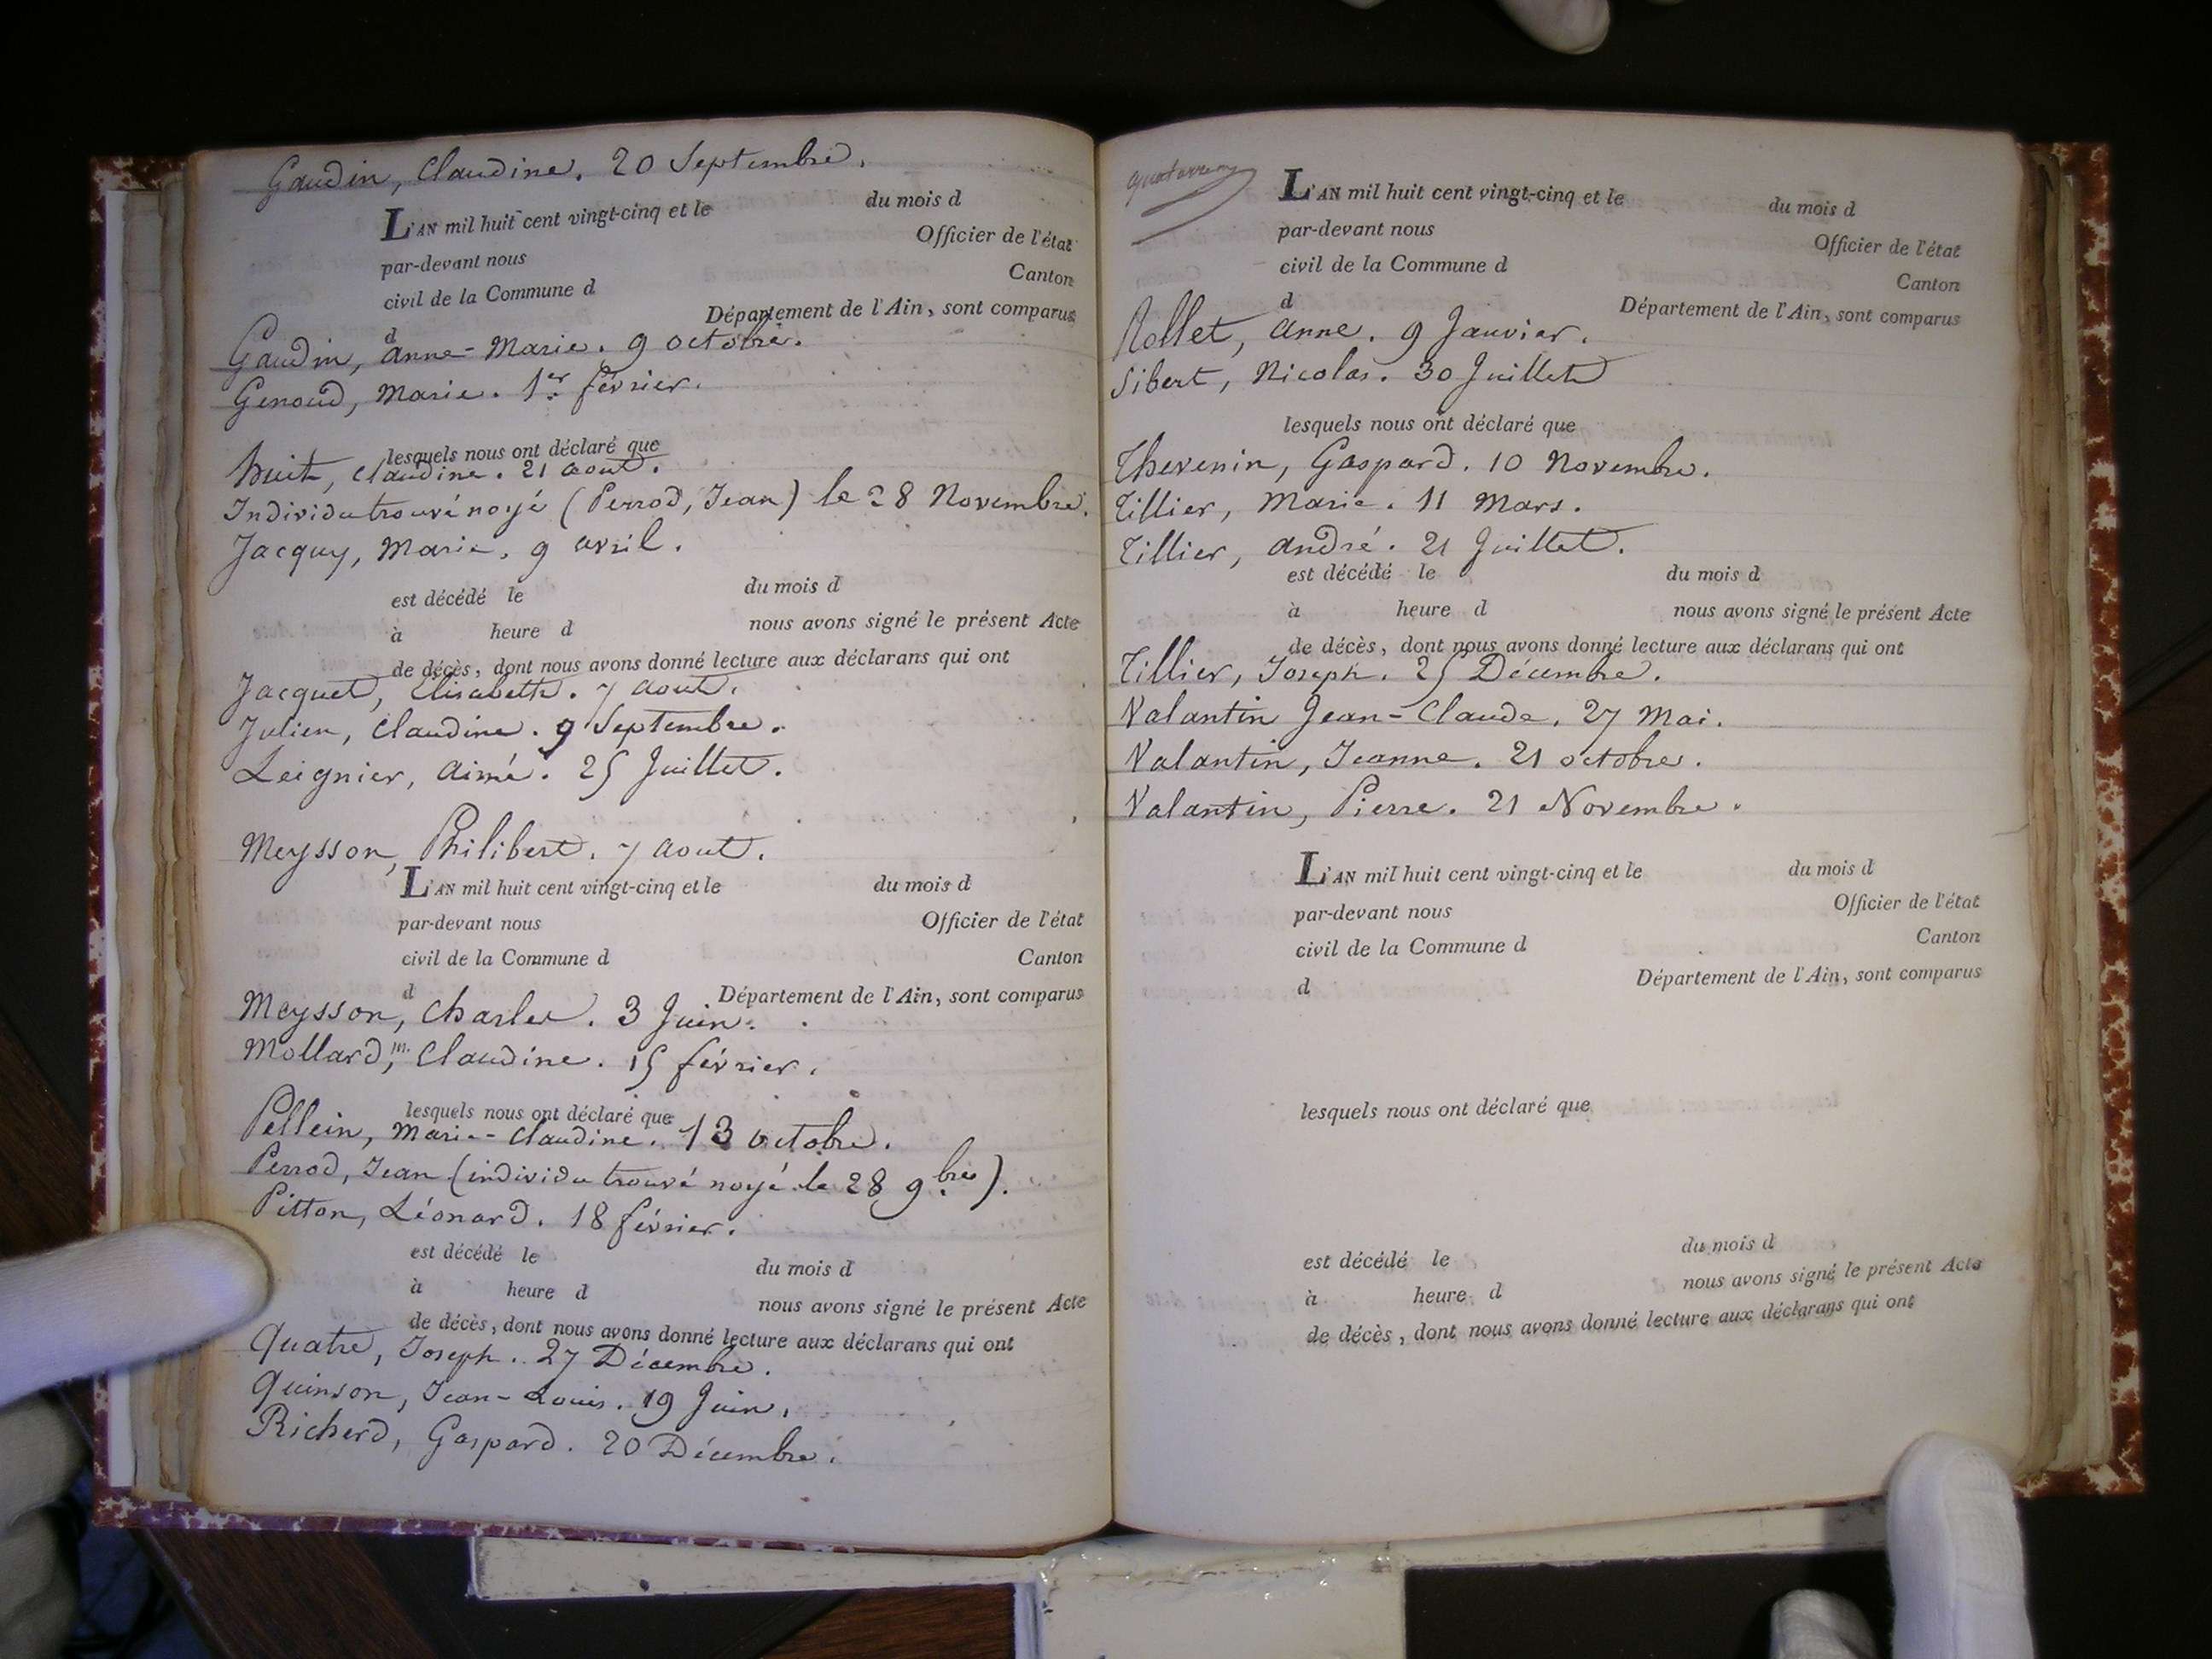 Gaudin, Claudine. 20 Septembre.
L'AN mil huit cent vingt-cinq et le du mois d
par-devant nous Officier de l'état
civil de la Commune d Canton
d Département de l'Ain, sont comparus
Gaudin, anne-Marie. 9 octobre.
Genoud, Marie. 1er février.
lesquels nous ont déclaré que
huit, Claudine. 21 aout.
Individu trouvé noyé (Perrod, Jean) le 28 Novembre.
Jacquy, Marie. 9 avril.
est décédé le du mois d
à heure d nous avons signé le présent Acte
de décès, dont nous avons donné lecture aux déclarans qui ont
Jacquet, Elisabeth. 7 aout.
Julien, Claudine. 9 Septembre.
Leignier, Aimé. 25 Juillet.
Meysson, Philibert. 7 aout.
L'AN mil huit cent vingt-cinq et le du mois d
par-devant nous Officier de l'état
civil de la Commune d Canton
d Département de l'Ain, sont comparus
Meysson, Charles. 3 Juin.
Mollard, m. Claudine. 15 février.
lesquels nous ont déclaré que
Pellein, Marie-Claudine. 13 octobre.
Perrod, Jean (individu trouvé noyé le 28 9bre).
Pitton, Léonard. 18 février.
est décédé le du mois d
à heure d nous avons signé le présent Acte
de décès, dont nous avons donné lecture aux déclarans qui ont
Quatre, Joseph. 27 Décembre.
Quinson, Jean-Louis. 19 Juin.
Richerd, Gaspard. 20 Décembre.
L'AN mil huit cent vingt-cinq et le du mois d
par-devant nous Officier de l'état
civil de la Commune d Canton
d Département de l'Ain, sont comparus
Rollet, anne. 9 Janvier.
Sibert, Nicolas. 30 Juillet
lesquels nous ont déclaré que
Thevenin, Gaspard. 10 Novembre.
Tillier, Marie. 11 Mars.
Tillier, andré. 21 Juillet.
est décédé le du mois d
à heure d nous avons signé le présent Acte
de décès, dont nous avons donné lecture aux déclarans qui ont
Tillier, Joseph. 25 Décembre.
Valantin Jean-Claude. 27 Mai.
Valantin, Jeanne. 21 octobre.
Valantin, Pierre. 21 Novembre.
L'AN mil huit cent vingt-cinq et le du mois d
par-devant nous Officier de l'état
civil de la Commune d Canton
d Département de l'Ain, sont comparus
lesquels nous ont déclaré que
est décédé le du mois d
à heure d nous avons signé le présent Acte
de décès, dont nous avons donné lecture aux déclarans qui ont